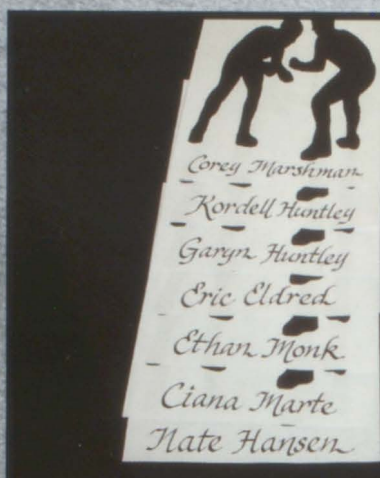 Corey Marshman
Kordell Huntley
Garyn Huntley
Eric Eldred
Ethan Monk
Ciana Marte
Nate Hansen